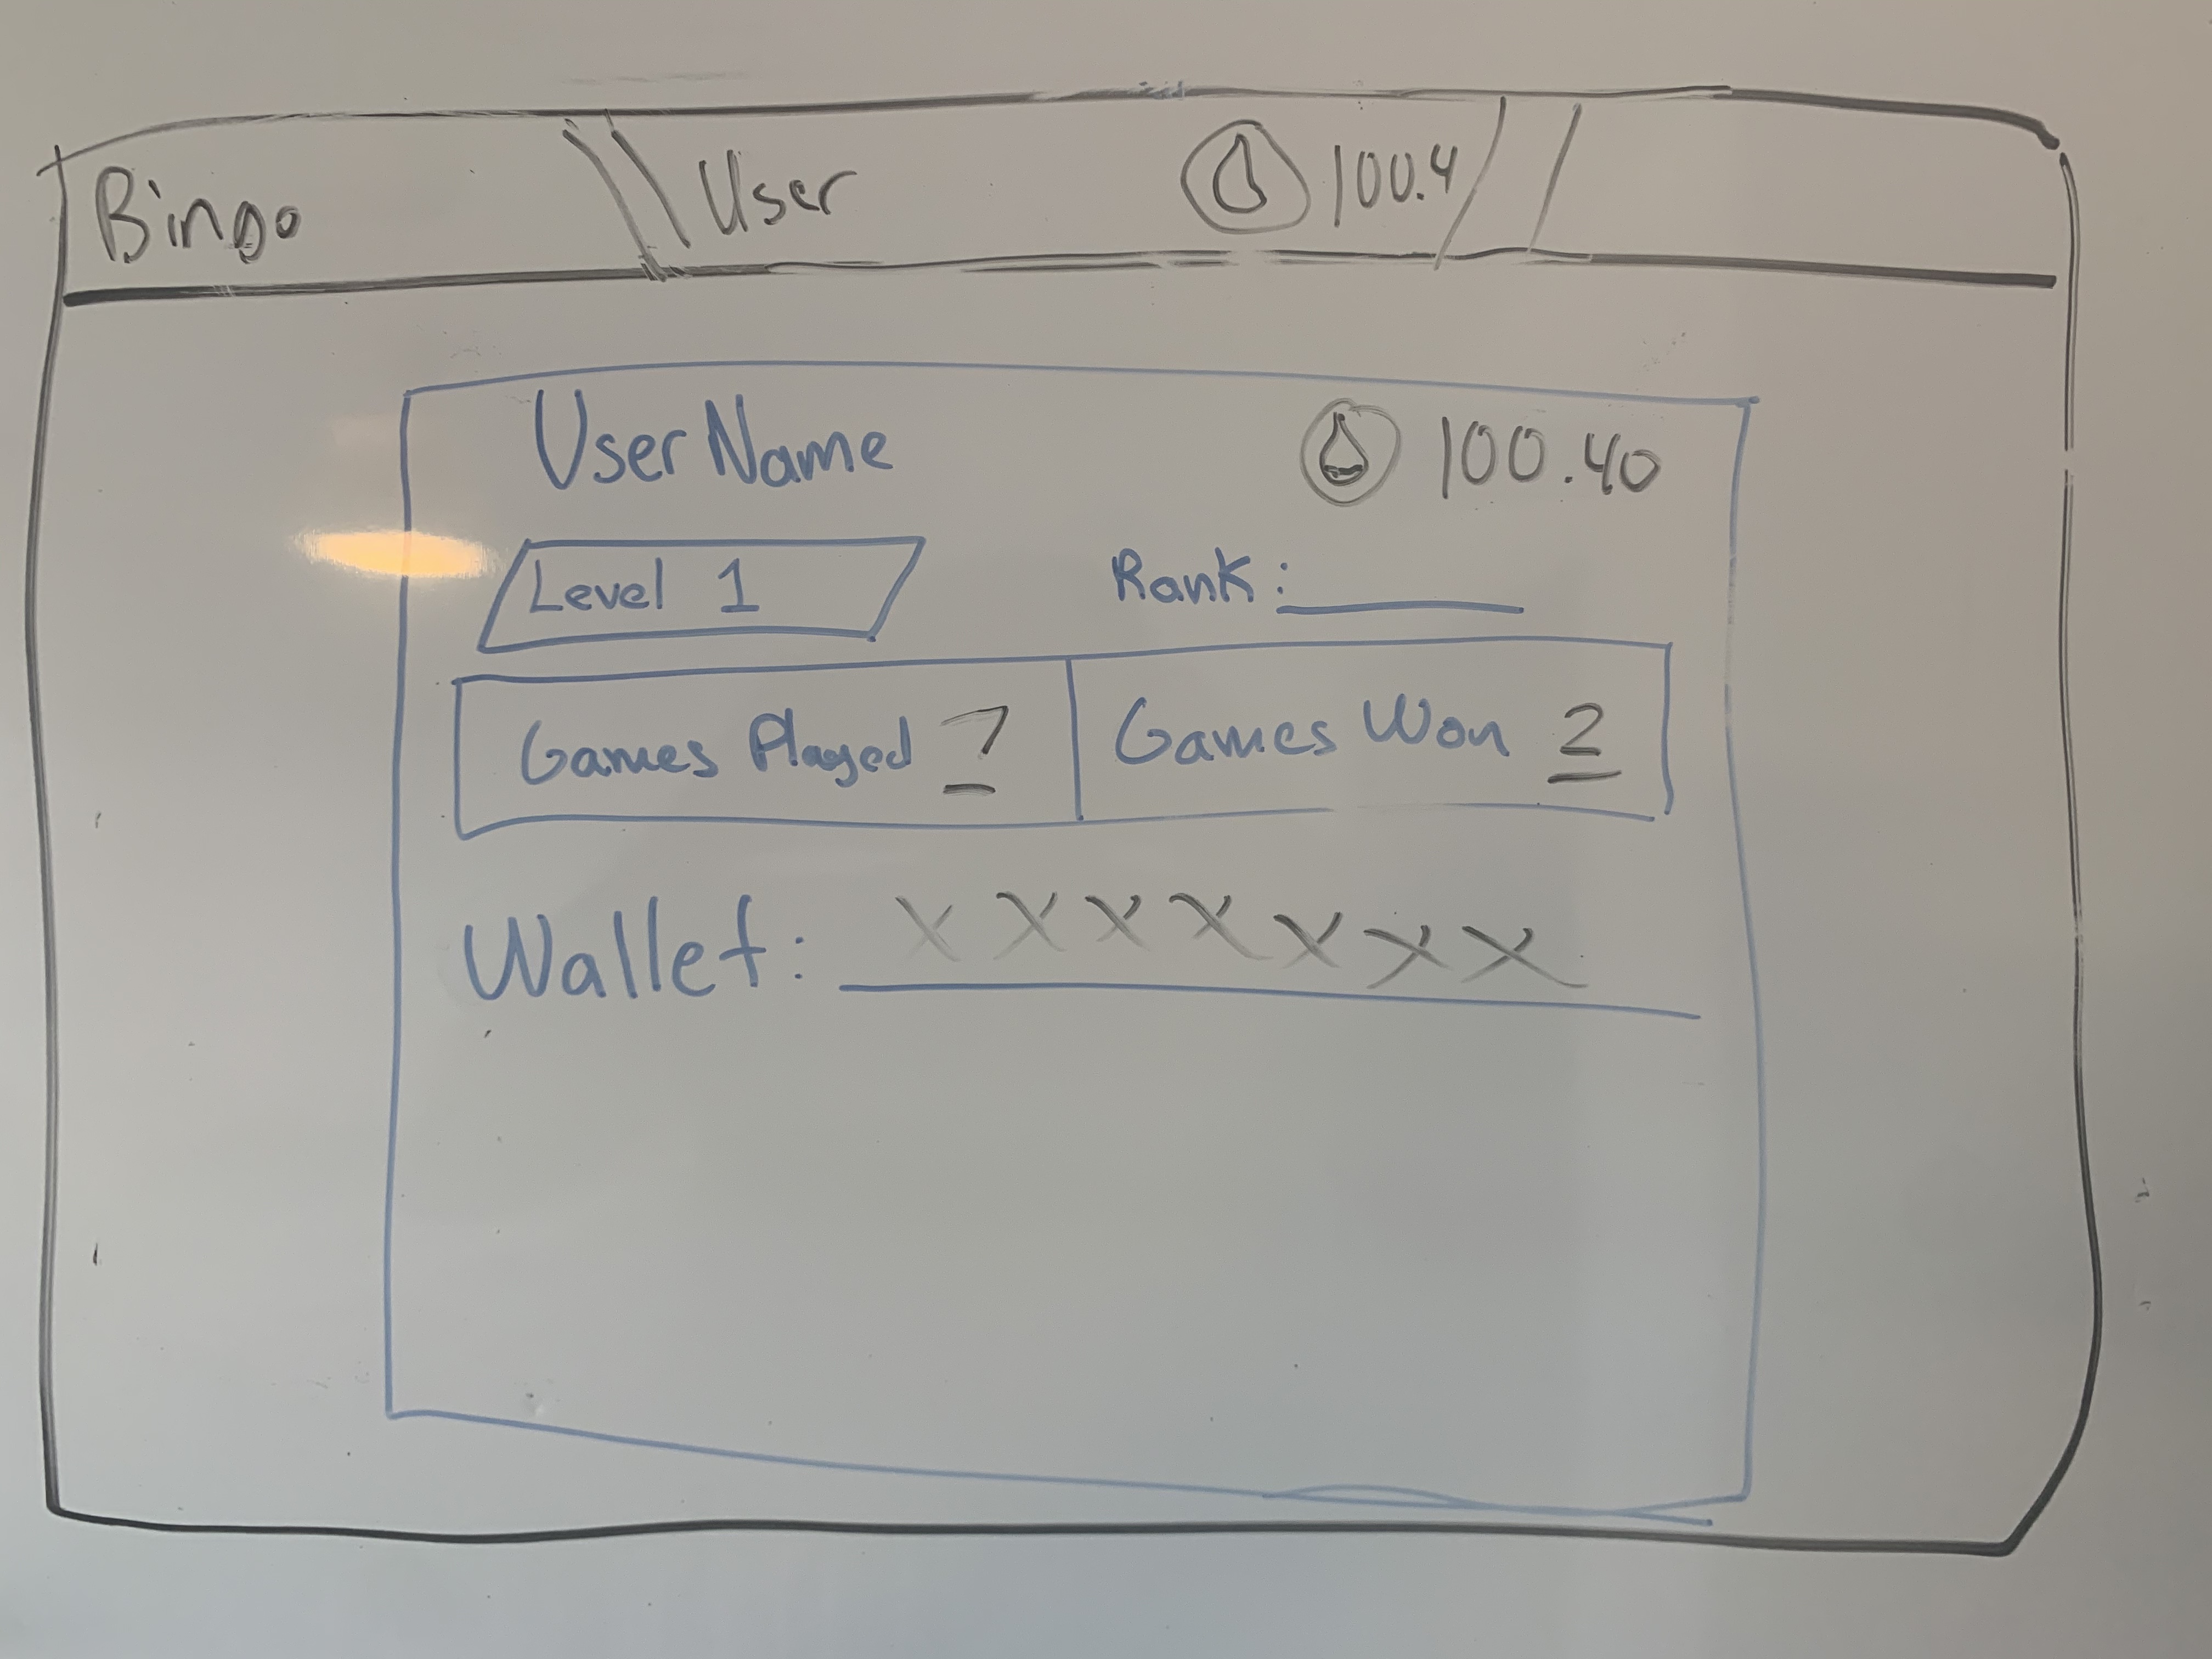 Bingo User 100.4
UserName 100.40
Level 1 Rank:
Games Played 7 Games Won 2
Wallet: XXXXXXX